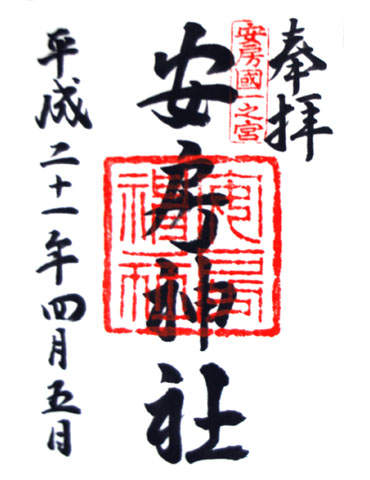 奉拝
安房國一之宮
安房神社
安房神社
平成二十一年四月五日